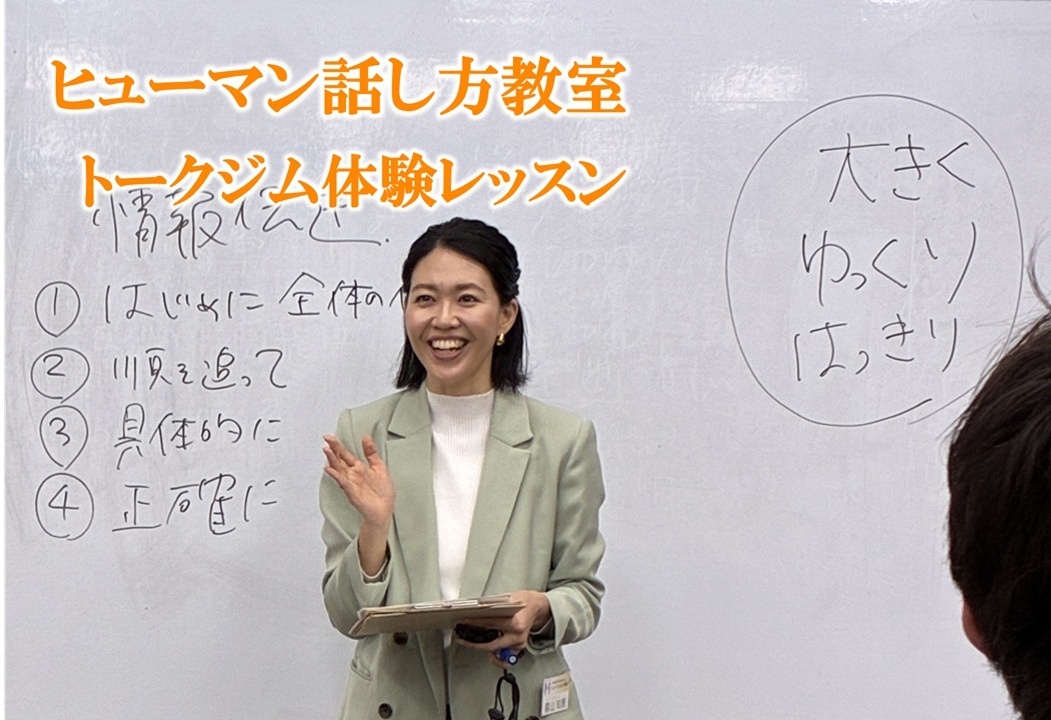 ヒューマン話し方教室
トークジム体験レッスン
情報伝達
① はじめに 全体の
② 順を追って
③ 具体的に
④ 正確に
大きく
ゆっくり
はっきり